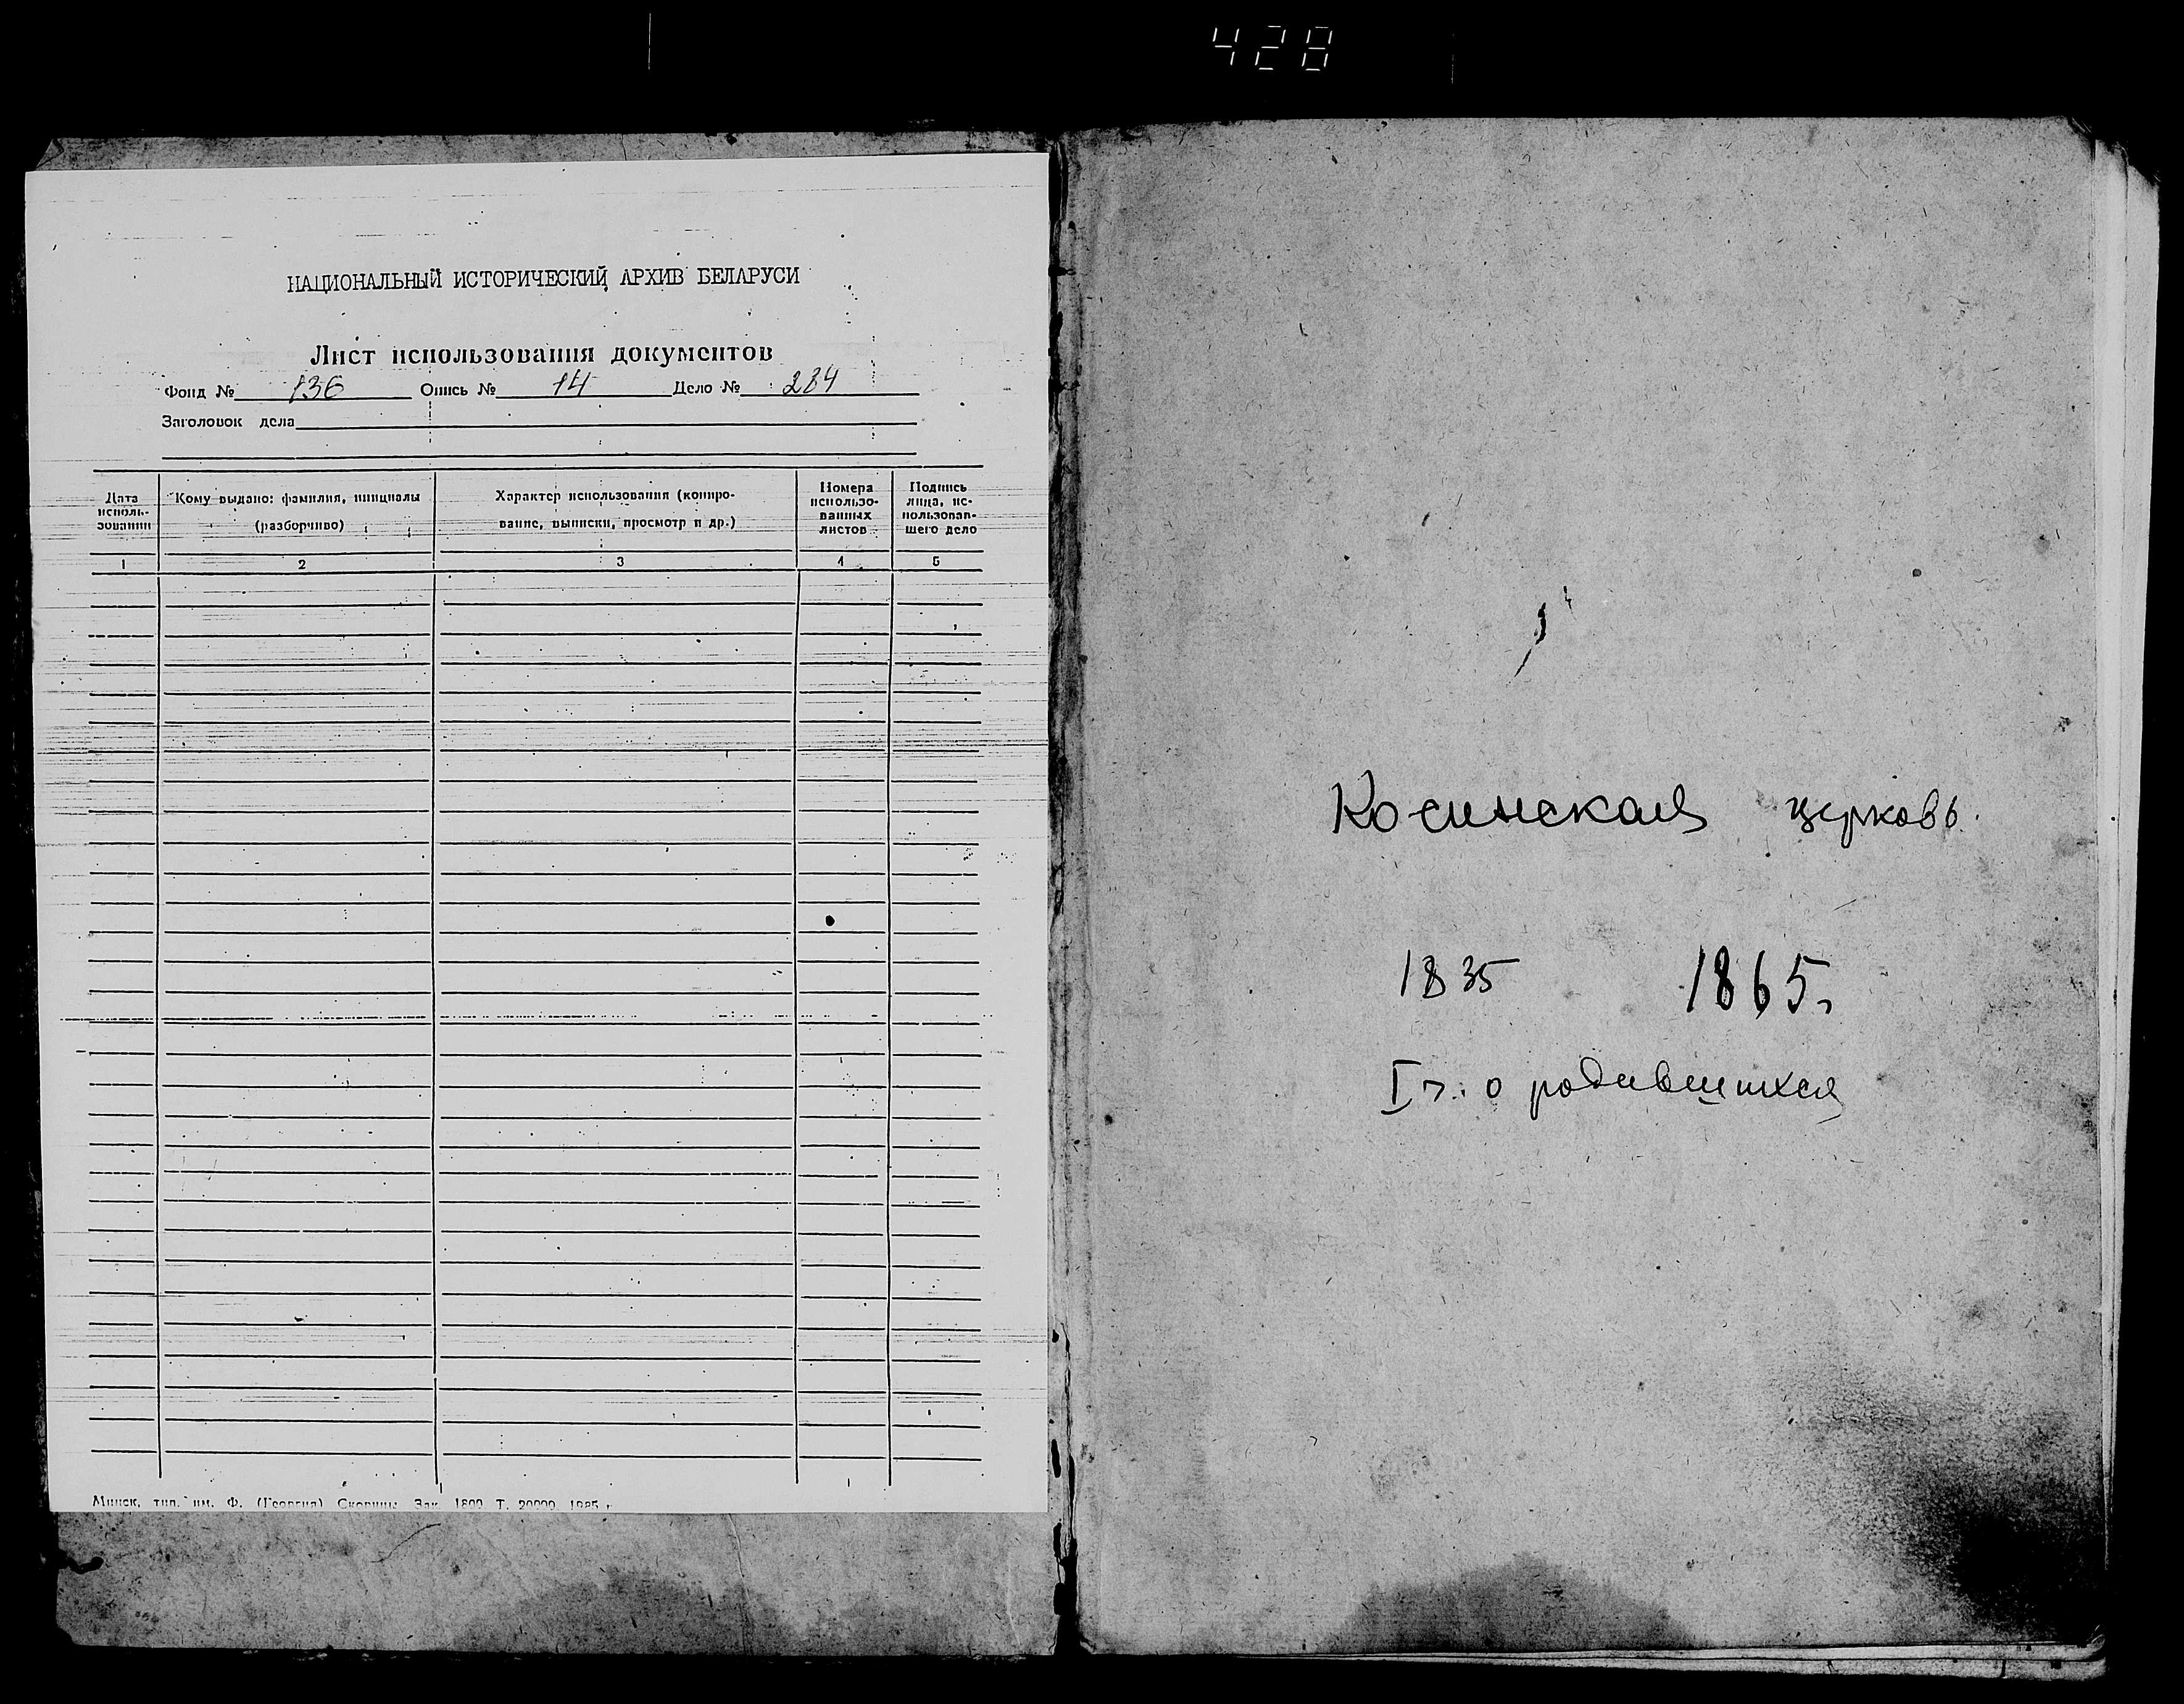 428
НАЦИОНАЛЬНЫЙ ИСТОРИЧЕСКИЙ АРХИВ БЕЛАРУСИ
Лист использования документов
Фонд № 136 Опись № 14 Дело № 284
Заголовок дела
Дата исполь-зования
Кому выдано: фамилия, инициалы (разборчиво)
Характер использования (копиро-вание, выписки, просмотр и др.)
Номера использо-ванных листов
Подпись лица, ис-пользовав-шего дело
1 2 3 4 5
Минск, тип. им. Ф. (Георгия) Скорины. Зак. 1800. Т. 20000. 1995 г.
Косинская церковь.
1835 1865г
I ч. о родившихся